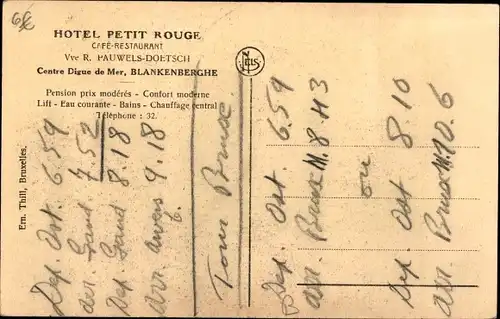 HOTEL PETIT ROUGE
CAFÉ-RESTAURANT
Vve R. PAUWELS-DOETSCH
Centre Digue de Mer, BLANKENBERGHE
Pension prix modérés - Confort moderne
Lift - Eau courante - Bains - Chauffage central
Téléphone : 32.
Ern. Thill, Bruxelles.
Dep. Ost. 6.59
arr. Gand 7.52
Dep. Gand 8.18
arr anvers 9.18
Tour Brux.
Dep. Ost 6.59
arr. Brux M. 8.43
ou
Dep. Ost 8.10
arr. Brux M. 10.6